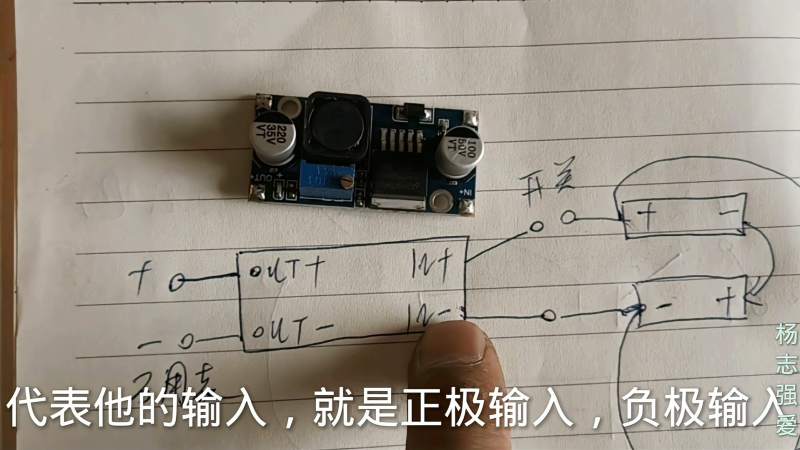 220
35V
VT
100
50V
VT
OUT
IN+
开关
+ -
+ OUT+ IN+
- OUT- IN-
- +
代表他的输入，就是正极输入，负极输入
杨志强爱